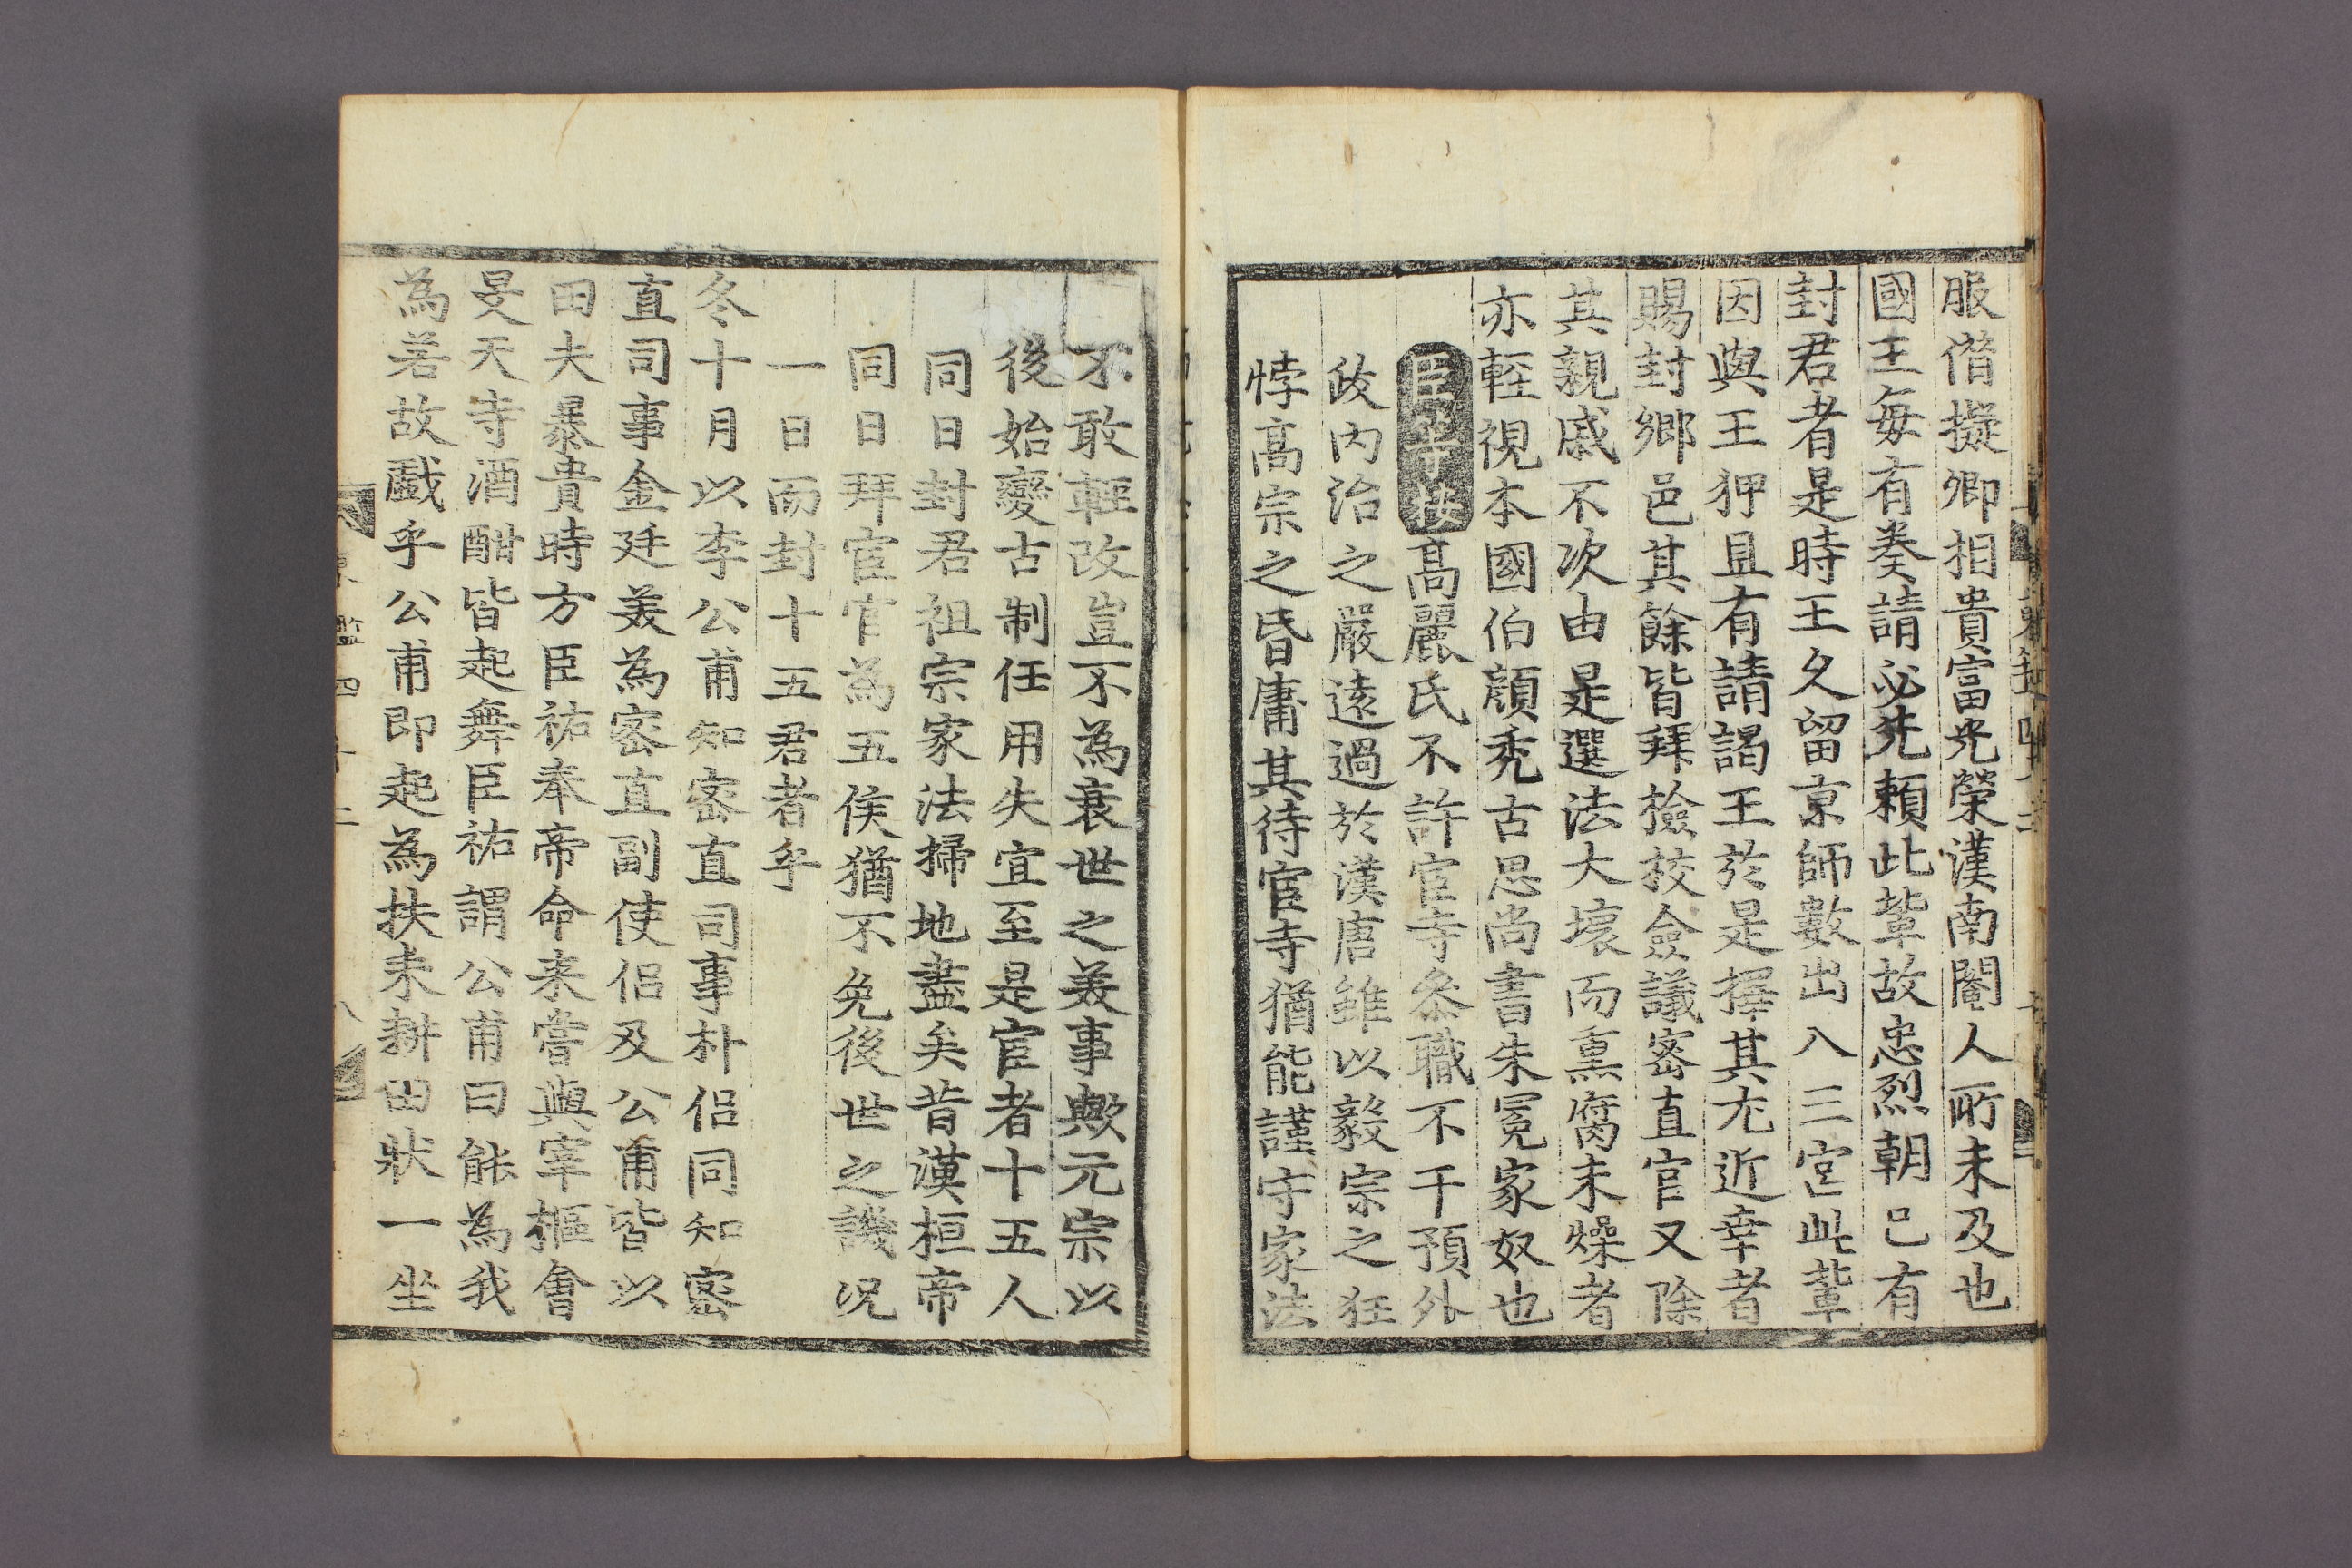 服僭擬卿相貴富光榮漢南閹人所未及也
國王每有奏請必先賴此輩故忠烈朝已有
封君者是時王久留京師數出入三宮此輩
因與王狎且有請謁王於是擇其尤近幸者
賜封鄉邑其餘皆拜檢校僉議密直官又除
其親戚不次由是選法大壞而熏腐未燥者
亦輕視本國伯顏禿古思尚書朱冕家奴也
臣等按高麗氏不許宦寺參職不干預外
政內治之嚴遠過於漢唐雖以毅宗之狂
悖高宗之昏庸其待宦寺猶能謹守家法
不敢輕改豈不為衰世之美事歟元宗以
後始變古制任用失宜至是宦者十五人
同日封君祖宗家法掃地盡矣昔漢桓帝
同日拜宦官為五侯猶不免後世之譏況
一日而封十五君者乎
冬十月以李公甫知密直司事朴侶同知密
直司事金廷美為密直副使侶及公甫皆以
田夫暴貴時方臣祐奉帝命来嘗與宰樞會
旻天寺酒酣皆起舞臣祐謂公甫曰能為我
為若故戲乎公甫即起為扶耒耕田狀一坐